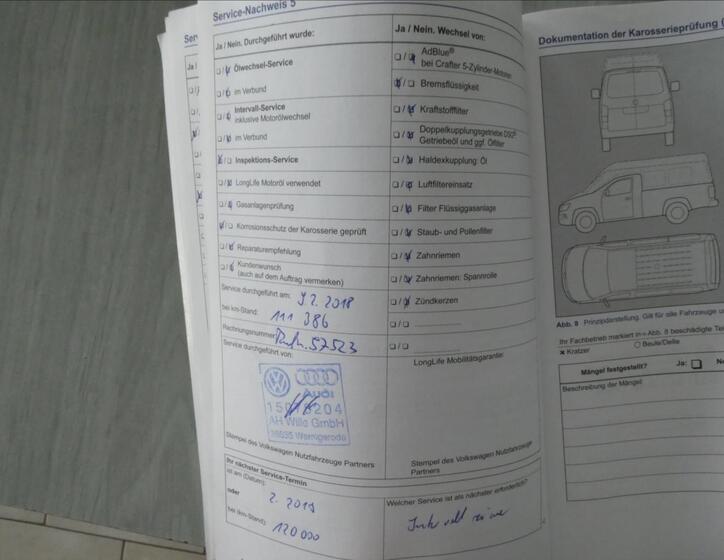 Service-Nachweis 5
Ja / Nein. Durchgeführt wurde:
Ölwechsel-Service
im Verbund
Intervall-Service
inklusive Motorölwechsel
im Verbund
Inspektions-Service
LongLife Motoröl verwendet
Gasanlagenprüfung
Korrosionsschutz der Karosserie geprüft
Reparaturempfehlung
Kundenwunsch
(auch auf dem Auftrag vermerken)
Service durchgeführt am: 9 2. 2018
bei km-Stand: 111 386
Rechnungsnummer: 57523
Service durchgeführt von:
Audi
AH Wille GmbH
Wernigerode
Stempel des Volkswagen Nutzfahrzeuge Partners
Ihr nächster Service-Termin
ist am (Datum):
oder 2. 2019
bei (km-Stand): 120 000
Ja / Nein. Wechsel von:
AdBlue®
bei Crafter 5-Zylinder-Motoren
Bremsflüssigkeit
Kraftstofffilter
Doppelkupplungsgetriebe DSG®
Getriebeöl und ggf. Ölfilter
Haldexkupplung: Öl
Luftfiltereinsatz
Filter Flüssiggasanlage
Staub- und Pollenfilter
Zahnriemen
Zahnriemen: Spannrolle
Zündkerzen
LongLife Mobilitätsgarantie:
Stempel des Volkswagen Nutzfahrzeuge
Partners
Welcher Service ist als nächster erforderlich?
Dokumentation der Karosserieprüfung
Abb. 8 Prinzipdarstellung. Gilt für alle Fahrzeuge
Ihr Fachbetrieb markiert in Abb. 8 beschädigte
× Kratzer ○ Beule/Delle
Mängel festgestellt? Ja:
Beschreibung der Mängel